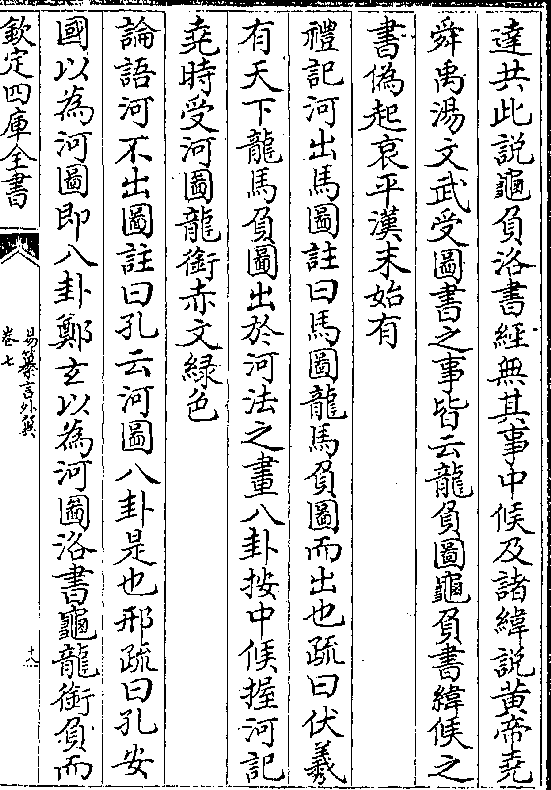 達共此說龜負洛書經無其事中候及諸緯說黃帝堯
舜禹湯文武受圖書之事皆云龍負圖龜負書緯候之
書偽起哀平漢末始有
禮記河出馬圖註曰馬圖龍馬負圖而出也疏曰伏羲
有天下龍馬負圖出於河法之畫八卦按中候握河記
堯時受河圖龍銜赤文綠色
論語河不出圖註曰孔云河圖八卦是也邢疏曰孔安
國以為河圖即八卦鄭玄以為河圖洛書龜龍銜負而
欽定四庫全書
易纂言外翼
卷七
十八